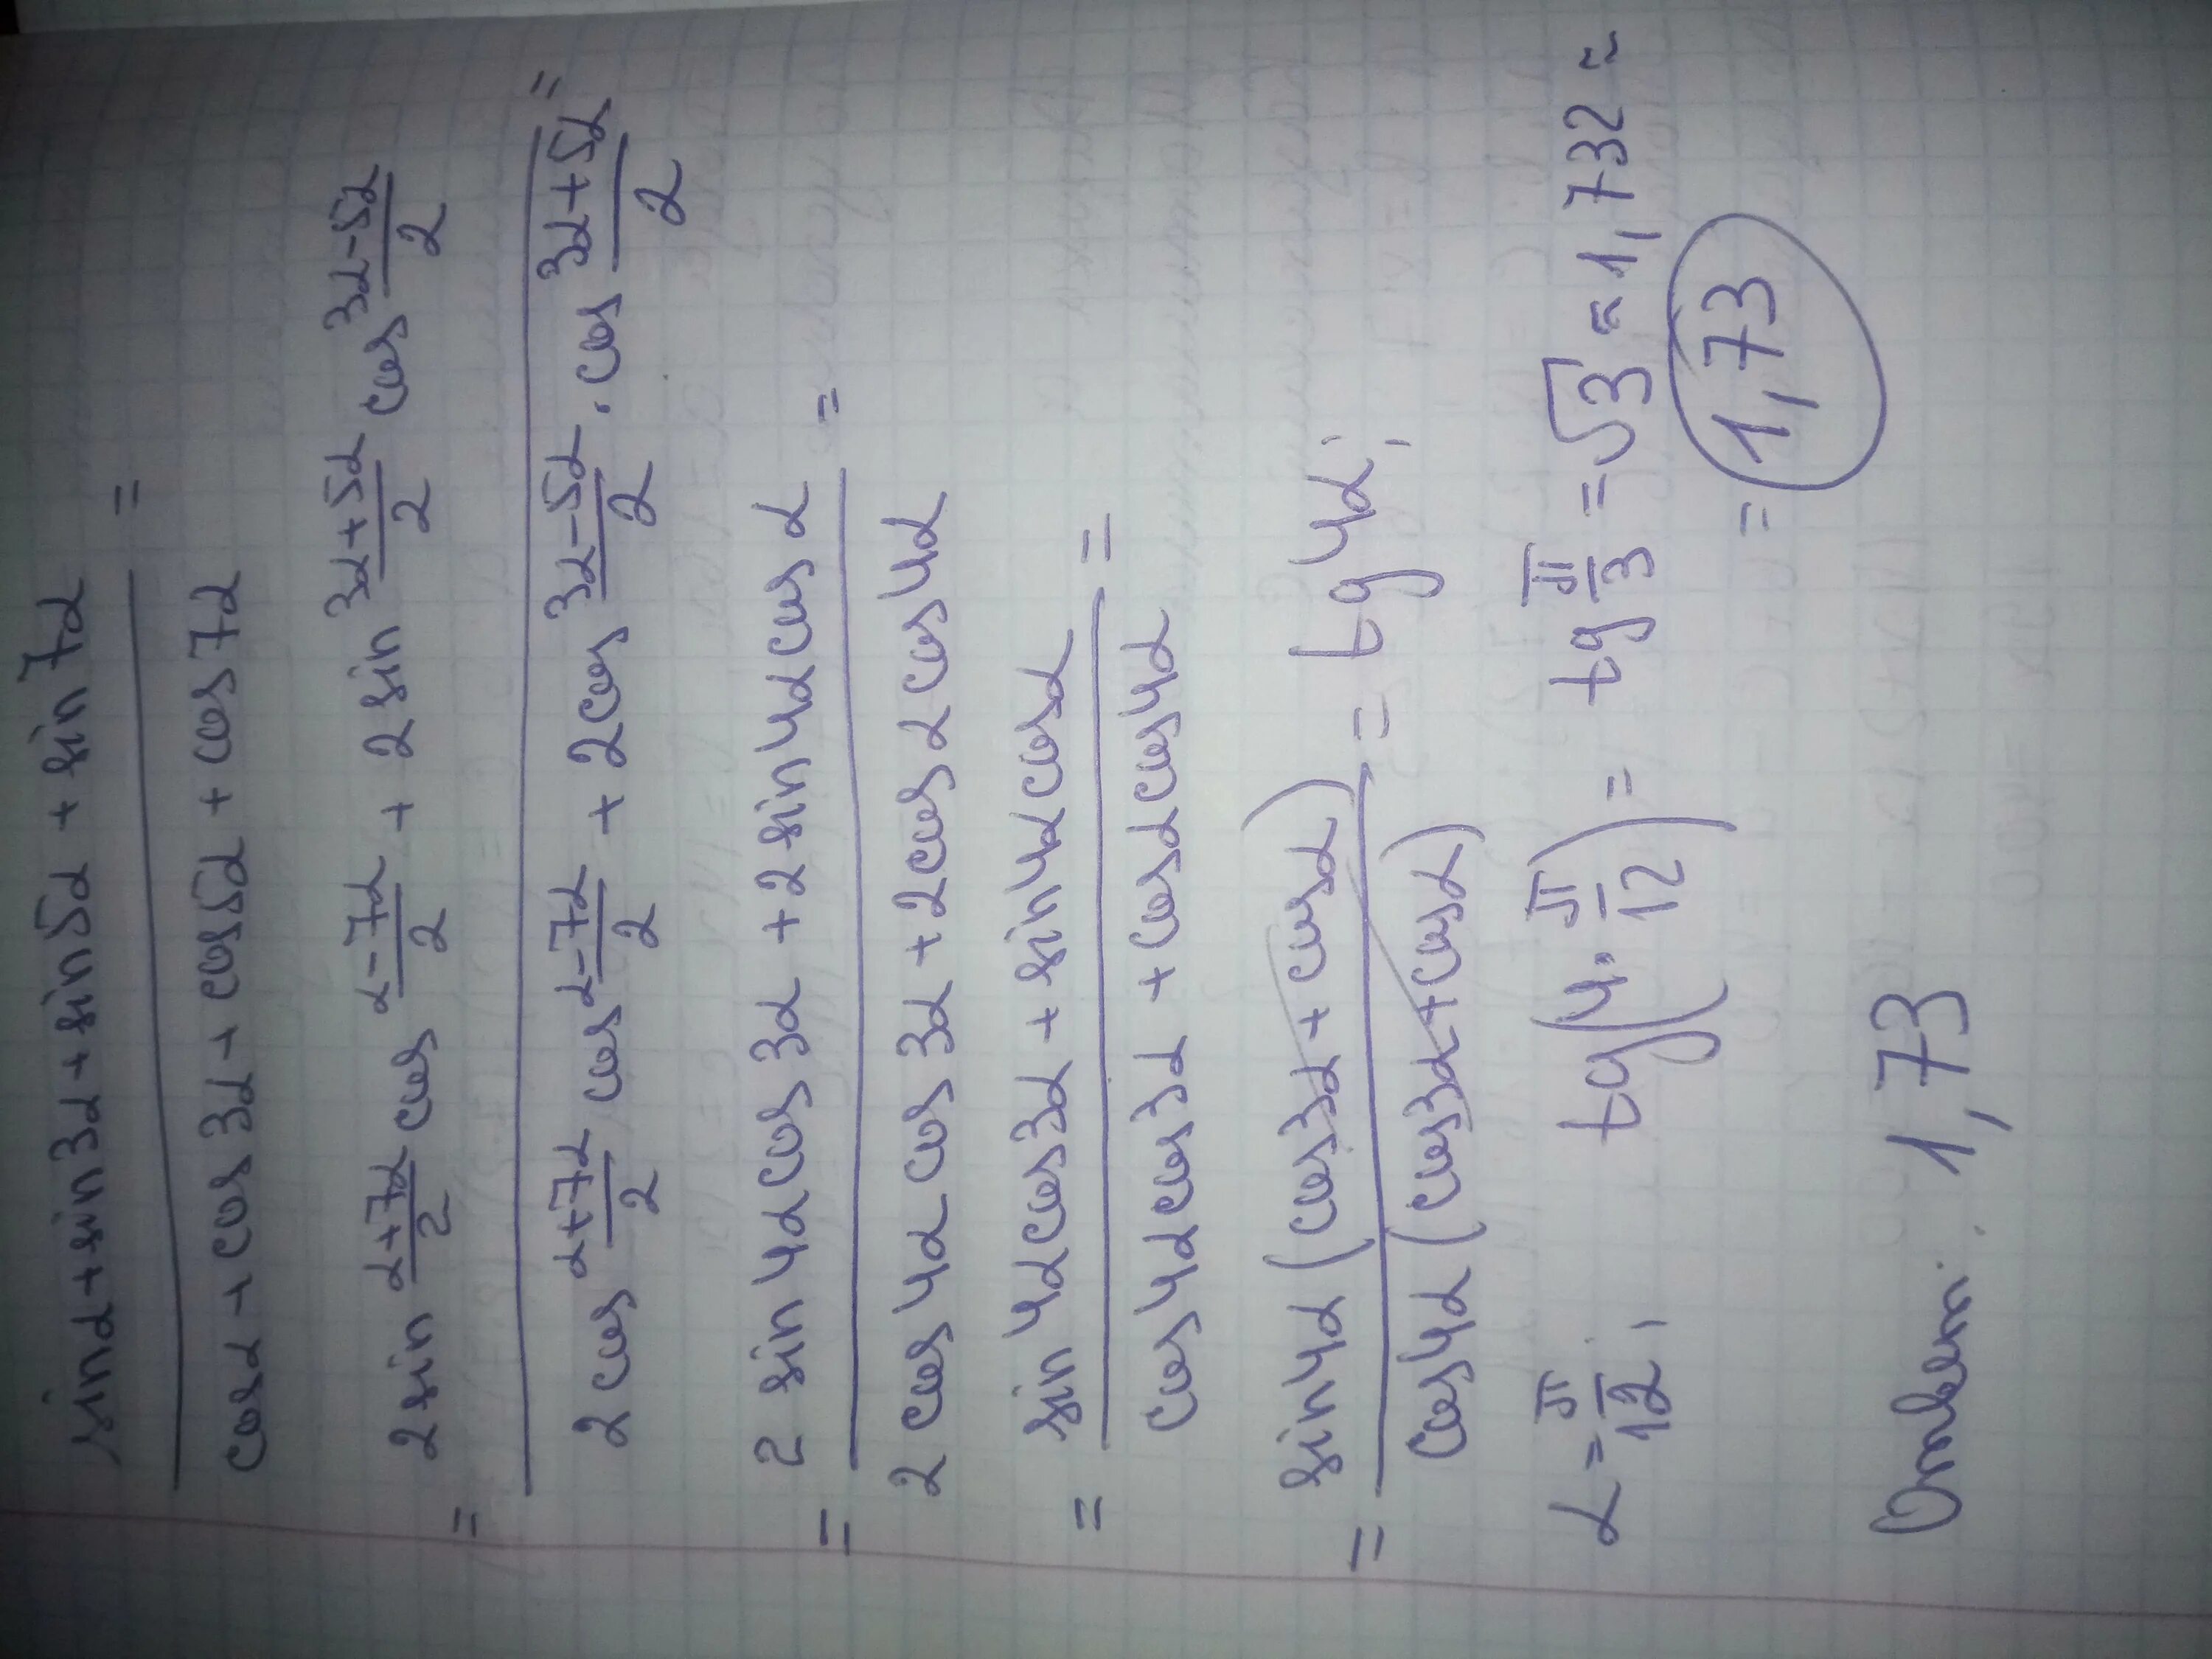 sinα+sin3α+sin5α+sin7α =
cosα+cos3α+cos5α+cos7α
= 2 sin α+7α/2 cos α-7α/2 + 2 sin 3α+5α/2 cos 3α-5α/2
2 cos α+7α/2 cos α-7α/2 + 2cos 3α-5α/2 · cos 3α+5α/2 =
= 2 sin 4α cos 3α + 2 sin 4α cos α =
2 cos 4α cos 3α + 2 cos α cos 4α
= sin 4α cos 3α + sin 4α cos α =
cos 4α cos 3α + cos α cos 4α
= sin 4α (cos 3α + cos α) = tg 4α;
cos 4α (cos 3α + cos α)
α = π/12; tg(4·π/12) = tg π/3 = √3 ≈ 1,732 ≈
= 1,73
Ответ: 1,73